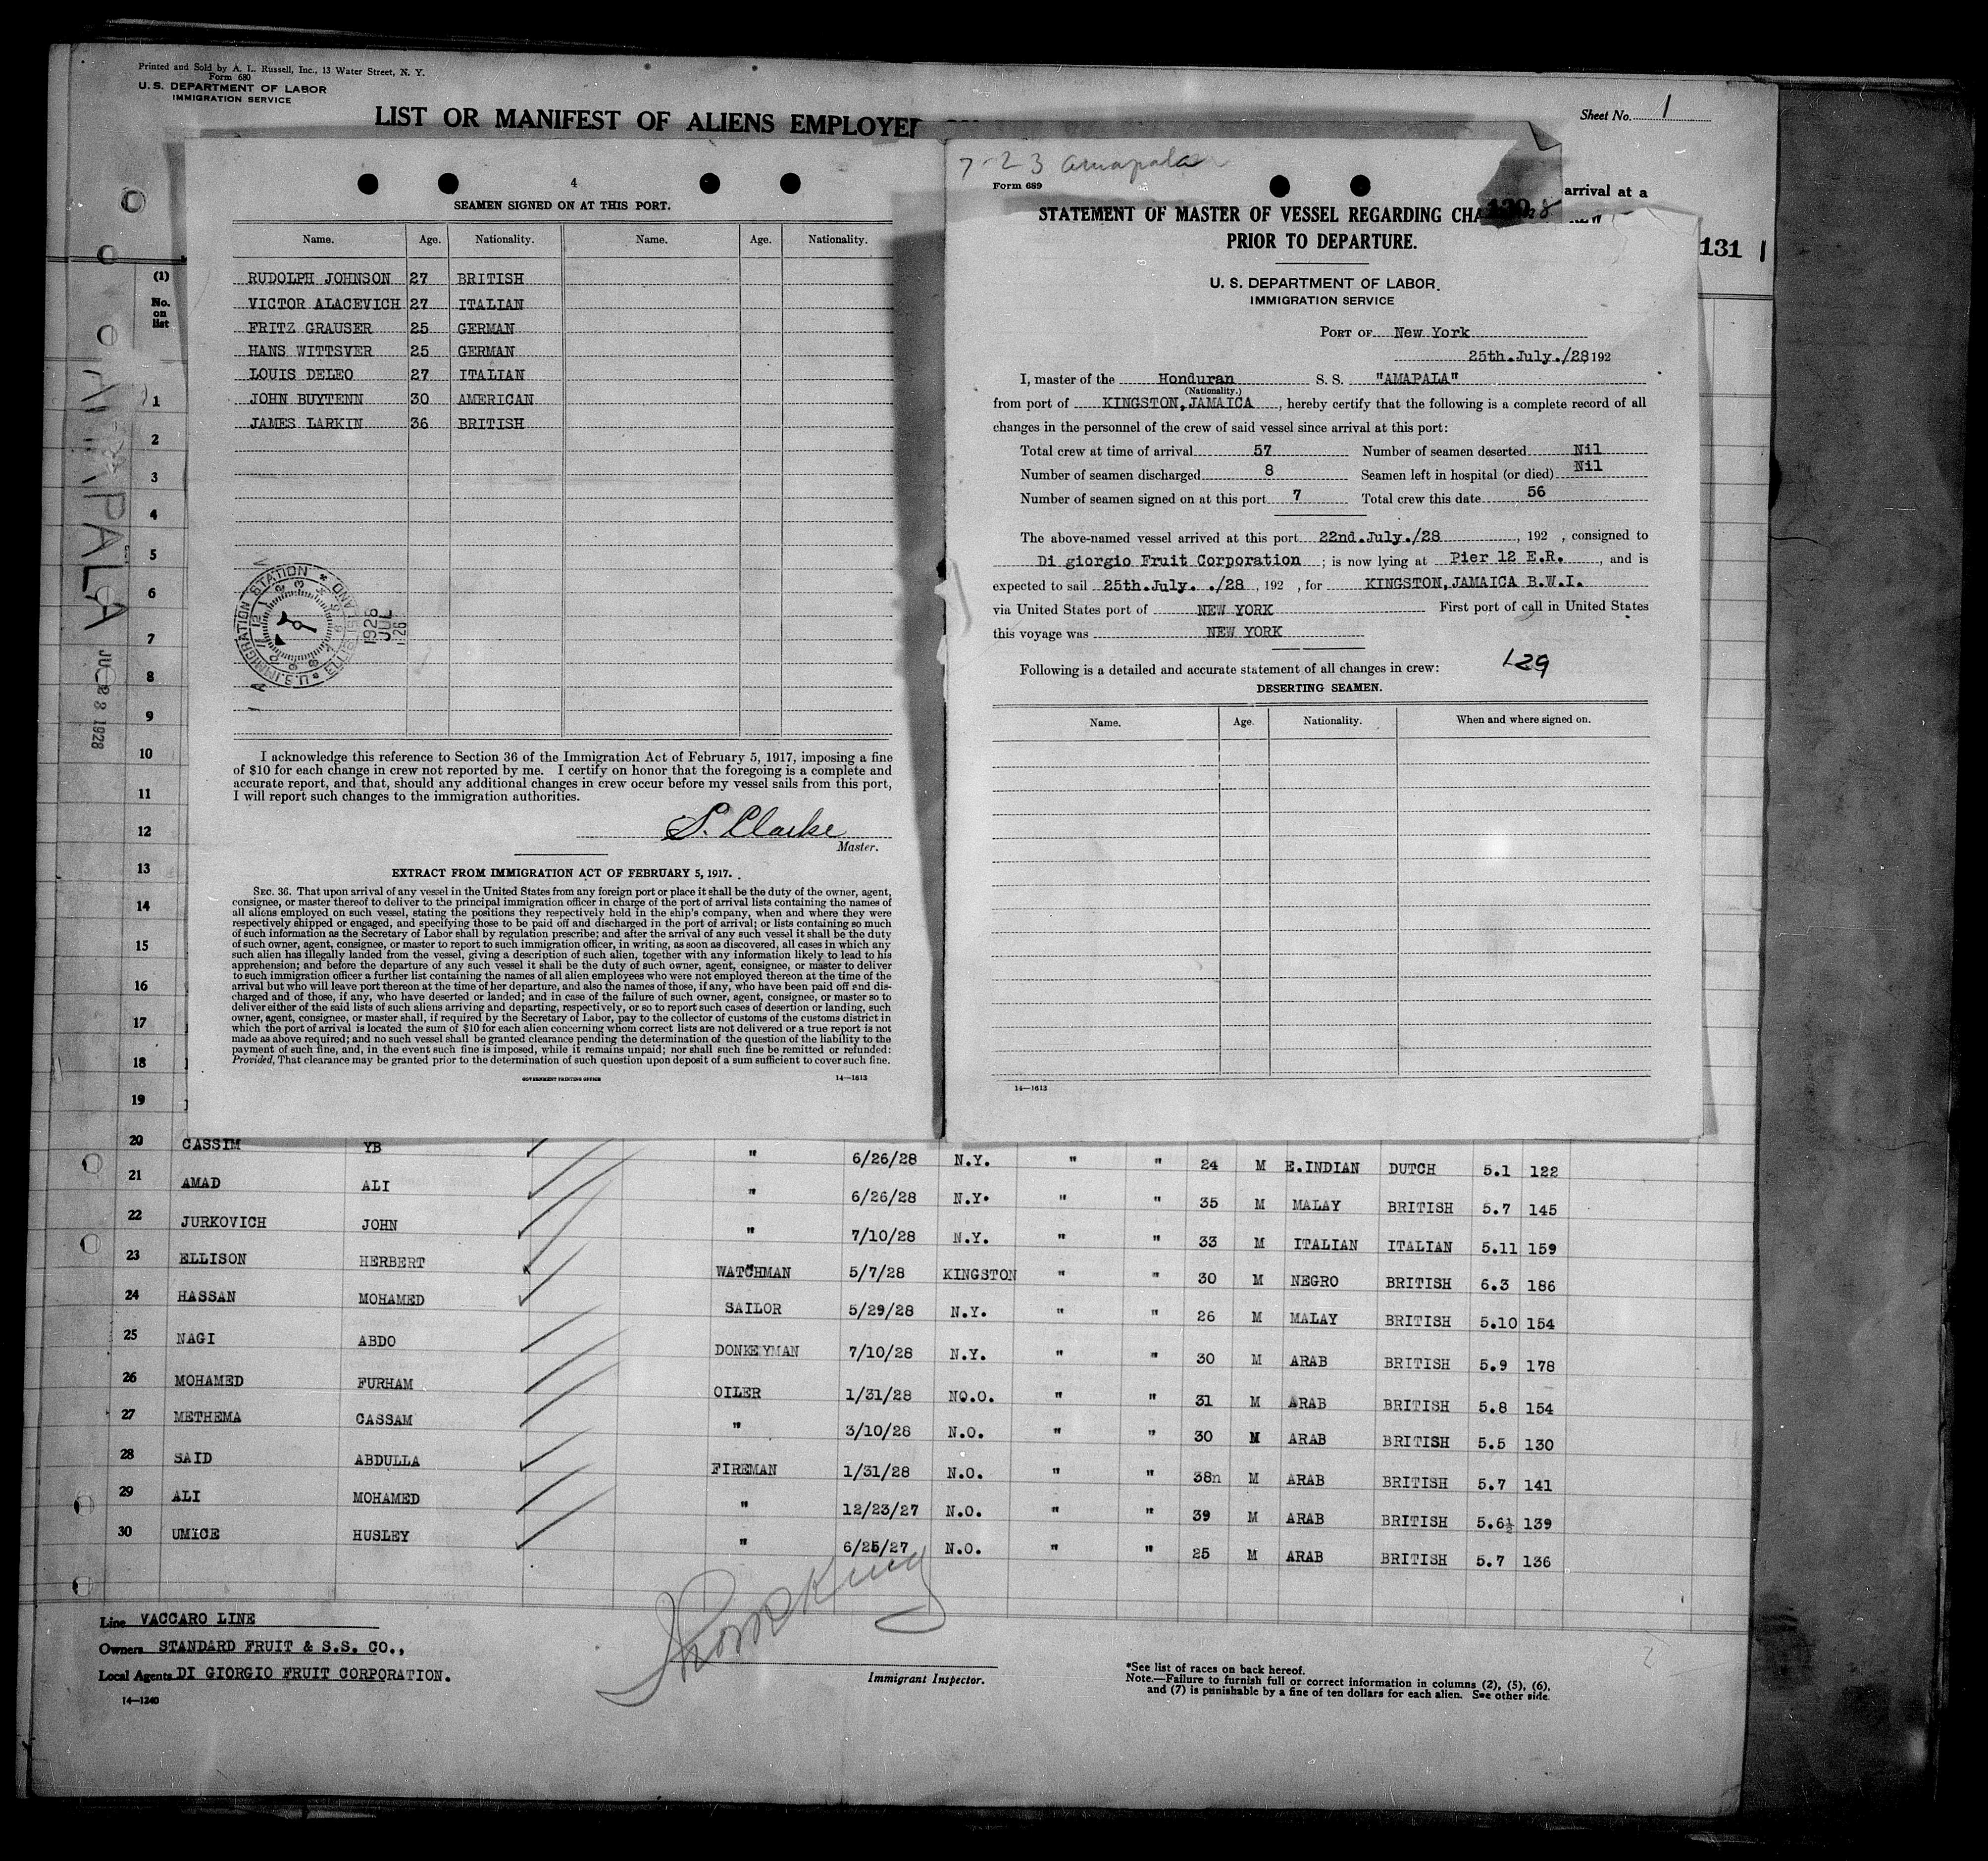 Printed and Sold by A. L. Russell, Inc., 13 Water Street, N. Y.
Form 680
U. S. DEPARTMENT OF LABOR
IMMIGRATION SERVICE
LIST OR MANIFEST OF ALIENS EMPLOYED
Sheet No. 1
arrival at a
131
(1)
No.
on
list
AMAPALA
1928
4
SEAMEN SIGNED ON AT THIS PORT.
Name. Age. Nationality. Name. Age. Nationality.
RUDOLPH JOHNSON 27 BRITISH
VICTOR ALACEVICH 27 ITALIAN
FRITZ GRAUSER 25 GERMAN
HANS WITTSVER 25 GERMAN
LOUIS DELEO 27 ITALIAN
JOHN BUYTENN 30 AMERICAN
JAMES LARKIN 36 BRITISH
U.S. IMMIGRATION STATION * ELLIS ISLAND
1928
JUL
26
I acknowledge this reference to Section 36 of the Immigration Act of February 5, 1917, imposing a fine
of $10 for each change in crew not reported by me. I certify on honor that the foregoing is a complete and
accurate report, and that, should any additional changes in crew occur before my vessel sails from this port,
I will report such changes to the immigration authorities.
S. Clarke
Master.
EXTRACT FROM IMMIGRATION ACT OF FEBRUARY 5, 1917.
SEC. 36. That upon arrival of any vessel in the United States from any foreign port or place it shall be the duty of the owner, agent,
consignee, or master thereof to deliver to the principal immigration officer in charge of the port of arrival lists containing the names of
all aliens employed on such vessel, stating the positions they respectively hold in the ship's company, when and where they were
respectively shipped or engaged, and specifying those to be paid off and discharged in the port of arrival; or lists containing so much
of such information as the Secretary of Labor shall by regulation prescribe; and after the arrival of any such vessel it shall be the duty
of such owner, agent, consignee, or master to report to such immigration officer, in writing, as soon as discovered, all cases in which any
such alien has illegally landed from the vessel, giving a description of such alien, together with any information likely to lead to his
apprehension; and before the departure of any such vessel it shall be the duty of such owner, agent, consignee, or master to deliver
to such immigration officer a further list containing the names of all alien employees who were not employed thereon at the time of the
arrival but who will leave port thereon at the time of her departure, and also the names of those, if any, who have been paid off and dis-
charged and of those, if any, who have deserted or landed; and in case of the failure of such owner, agent, consignee, or master so to
deliver either of the said lists of such aliens arriving and departing, respectively, or so to report such cases of desertion or landing, such
owner, agent, consignee, or master shall, if required by the Secretary of Labor, pay to the collector of customs of the customs district in
which the port of arrival is located the sum of $10 for each alien concerning whom correct lists are not delivered or a true report is not
made as above required; and no such vessel shall be granted clearance pending the determination of the question of the liability to the
payment of such fine, and, in the event such fine is imposed, while it remains unpaid; nor shall such fine be remitted or refunded:
Provided, That clearance may be granted prior to the determination of such question upon deposit of a sum sufficient to cover such fine.
GOVERNMENT PRINTING OFFICE 14—1613
7-23 Amapala
Form 689
130
STATEMENT OF MASTER OF VESSEL REGARDING CHA
PRIOR TO DEPARTURE.
U. S. DEPARTMENT OF LABOR
IMMIGRATION SERVICE
PORT OF New York
25th.July./28 192
I, master of the Honduran S. S. "AMAPALA"
(Nationality.)
from port of KINGSTON, JAMAICA, hereby certify that the following is a complete record of all
changes in the personnel of the crew of said vessel since arrival at this port:
Total crew at time of arrival 57 Number of seamen deserted Nil
Number of seamen discharged 8 Seamen left in hospital (or died) Nil
Number of seamen signed on at this port 7 Total crew this date 56
The above-named vessel arrived at this port 22nd.July./28, 192 , consigned to
Di giorgio Fruit Corporation ; is now lying at Pier 12 E.R. , and is
expected to sail 25th.July. ./28 , 192 , for KINGSTON, JAMAICA B.W.I.
via United States port of NEW YORK First port of call in United States
this voyage was NEW YORK
Following is a detailed and accurate statement of all changes in crew: 129
DESERTING SEAMEN.
Name. Age. Nationality. When and where signed on.
14—1613
1
2
3
4
5
6
7
8
9
10
11
12
13
14
15
16
17
18
19
20 CASSIM YB " 6/26/28 N.Y. " " 24 M E.INDIAN DUTCH 5.1 122
21 AMAD ALI " 6/26/28 N.Y. " " 35 M MALAY BRITISH 5.7 145
22 JURKOVICH JOHN " 7/10/28 N.Y. " " 33 M ITALIAN ITALIAN 5.11 159
23 ELLISON HERBERT WATCHMAN 5/7/28 KINGSTON " " 30 M NEGRO BRITISH 6.3 186
24 HASSAN MOHAMED SAILOR 5/29/28 N.Y. " " 26 M MALAY BRITISH 5.10 154
25 NAGI ABDO DONKEYMAN 7/10/28 N.Y. " " 30 M ARAB BRITISH 5.9 178
26 MOHAMED FURHAM OILER 1/31/28 NO.O. " " 31 M ARAB BRITISH 5.8 154
27 METHEMA CASSAM " 3/10/28 N.O. " " 30 M ARAB BRITISH 5.5 130
28 SAID ABDULLA FIREMAN 1/31/28 N.O. " " 38n M ARAB BRITISH 5.7 141
29 ALI MOHAMED " 12/23/27 N.O. " " 39 M ARAB BRITISH 5.6½ 139
30 UMICE HUSLEY " 6/25/27 N.O. " " 25 M ARAB BRITISH 5.7 136
Line VACCARO LINE
Owners STANDARD FRUIT & S.S. CO.,
Local Agents DI GIORGIO FRUIT CORPORATION.
14—1240
Immigrant Inspector.
*See list of races on back hereof.
Note.—Failure to furnish full or correct information in columns (2), (5), (6),
and (7) is punishable by a fine of ten dollars for each alien. See other side.